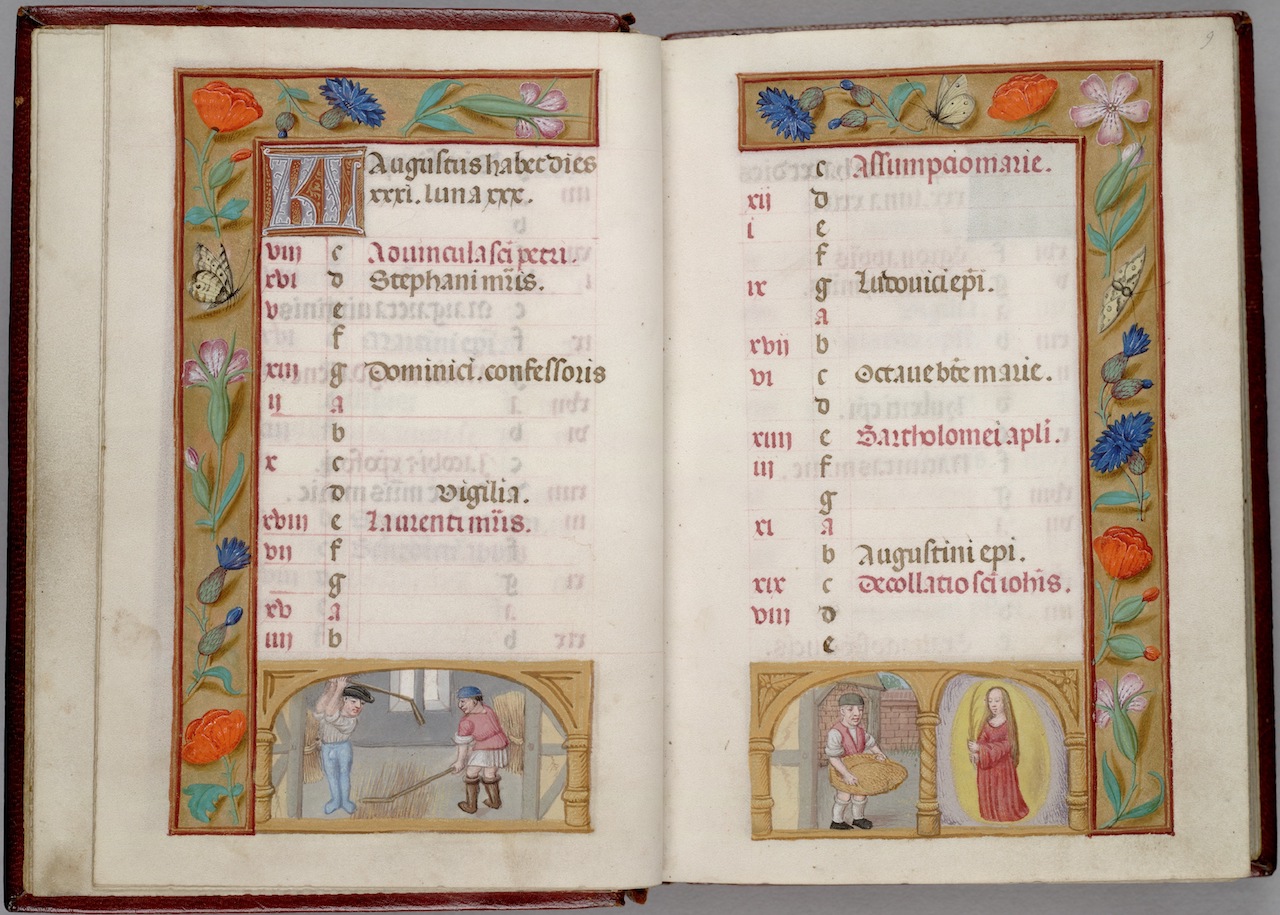 KL Augustus habet dies
xxxi. luna xxx.
viii c Aduincula sci petri.
xvi d Stephani mris.
v e
f
xiii g Dominici. confessoris
ii a
b
x c
d Vigilia.
xviii e Laurenti mris.
vii f
g
xv a
iiii b
9
c Assumpcio marie.
xii d
i e
f
ix g Ludovici epi.
a
xvii b
vi c Octaue bte marie.
d
xiiii e Bartholomei apli.
iii f
g
xi a
b Augustini epi.
xix c Decollatio sci iohis.
viii d
e